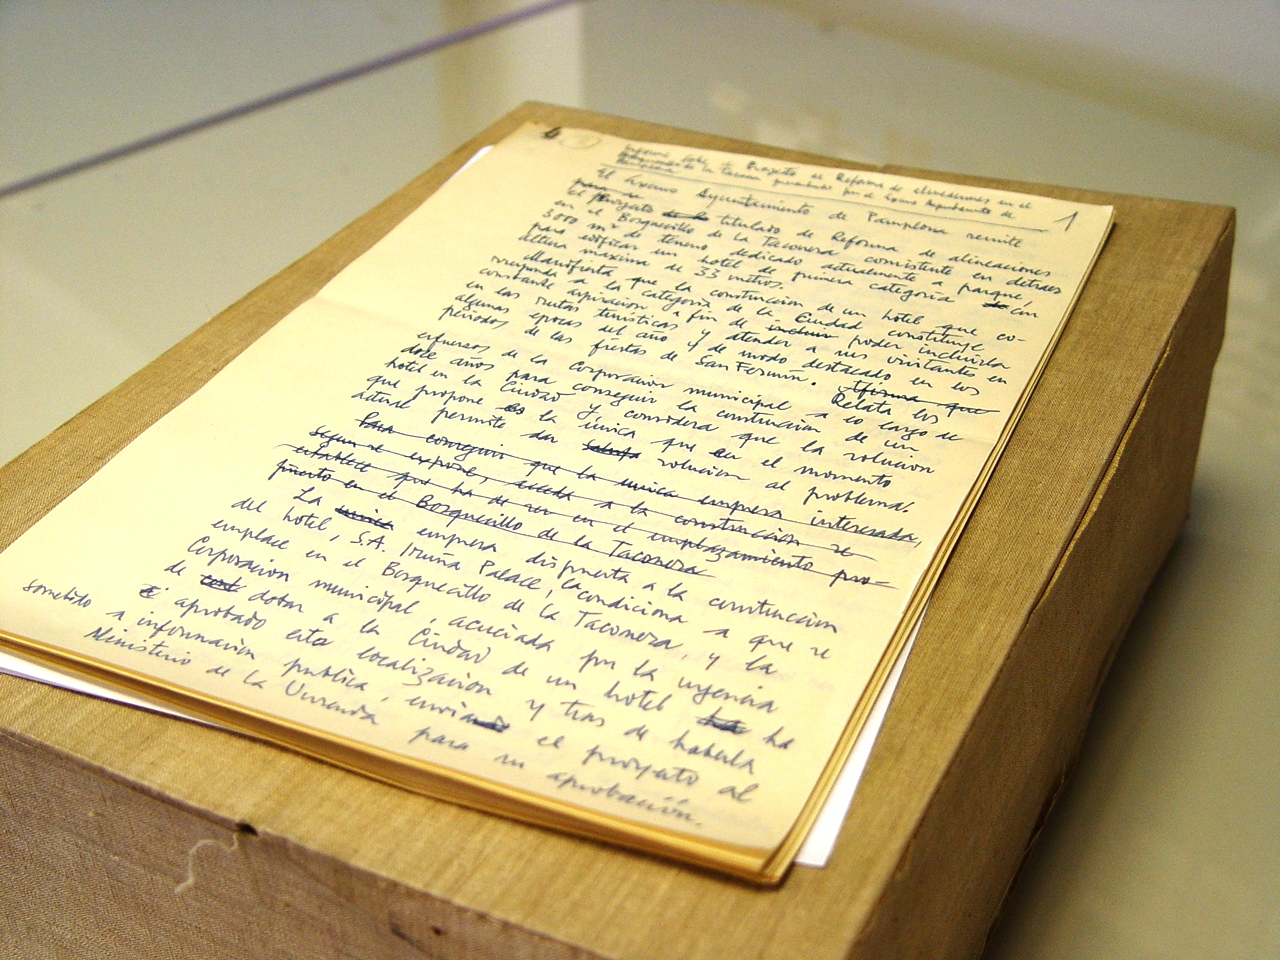 1
Informe sobre el Proyecto de Reforma de alineaciones en el
Bosquecillo de la Taconera presentado por el Excmo Ayuntamiento de
Pamplona
El Excmo Ayuntamiento de Pamplona remite
para su
el proyecto titulado de Reforma de alineaciones
en el Bosquecillo de la Taconera consistente en detraer
3000 m² de terreno dedicado actualmente a parque,
para edificar un hotel de primera categoria con
altura maxima de 33 metros.
Manifiesta que la construccion de un hotel que co-
rresponda a la categoria de la Ciudad constituye
constante aspiracion a fin de incluir poder incluirla
en las rutas turísticas y atender a sus visitantes en
algunas epocas del año y de modo destacado en los
periodos de las fiestas de San Fermin. Afirma que
Relata los
esfuerzos de la Corporacion municipal a lo largo de
doce años para conseguir la construccion de un
hotel en la Ciudad y considera que la solucion
que propone es la única que en el momento
actual permite dar solucion al problema.
Para conseguir que la unica empresa interesada,
segun se expone, acceda a la construccion se
establece que ha de ser en el emplazamiento pro-
puesto en el Bosquecillo de la Taconera
La unica empresa dispuesta a la construccion
del hotel, S.A. Iruña Palace, la condiciona a que se
emplace en el Bosquecillo de la Taconera, y la
Corporacion municipal, acuciada por la urgencia
de dotar a la Ciudad de un hotel ha ha
aprobado esta localizacion y tras de haberla
sometido a informacion publica, enviando el proyecto al
Ministerio de la Vivienda para su aprobación.